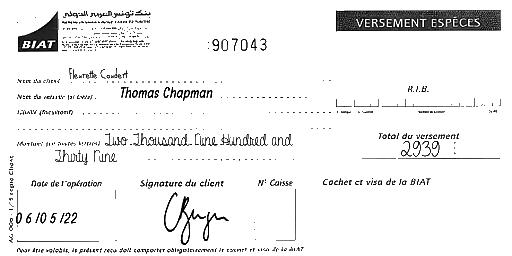 بنك تونس العربي الدولي
BIAT
VERSEMENT ESPÈCES
907043
Nom du client Fleurette Coudert
Nom du verseur (si tiers) Thomas Chapman
R.I.B.
Libellé (facultatif)
Montant (en toutes lettres) Two Thousand Nine Hundred and
Thirty Nine
Total du versement
2939
Date de l'opération
Signature du client
N° Caisse
Cachet et visa de la BIAT
06/05/22
Pour être valable, le présent reçu doit comporter obligatoirement le cachet et visa de la BIAT